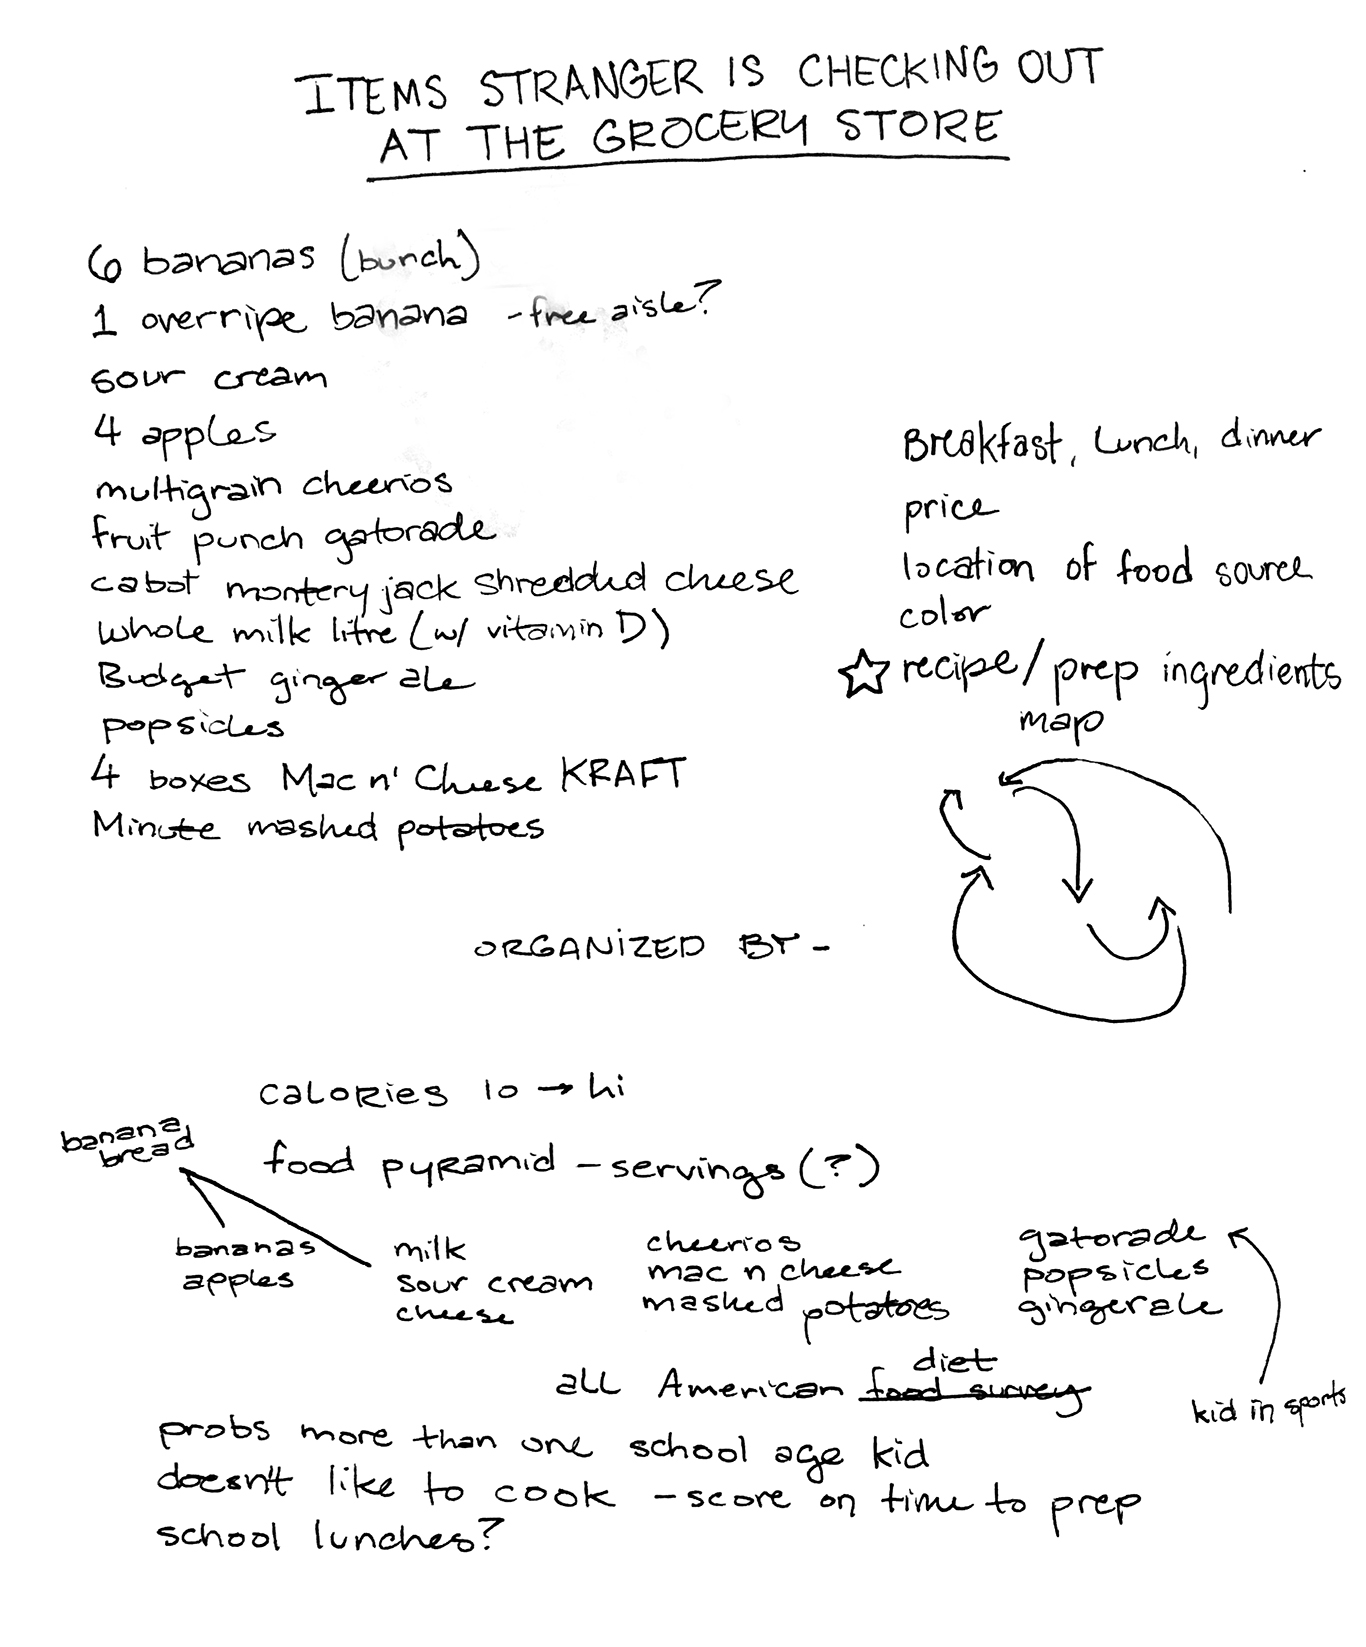 ITEMS STRANGER IS CHECKING OUT
AT THE GROCERY STORE
6 bananas (bunch)
1 overripe banana - free aisle?
sour cream
4 apples
multigrain cheerios
fruit punch gatorade
cabot montery jack shredded cheese
whole milk litre (w/ vitamin D)
Budget ginger ale
popsicles
4 boxes Mac n' Cheese KRAFT
Minute mashed potatoes
Breakfast, Lunch, dinner
price
location of food source
color
☆ recipe/prep ingredients
map
ORGANIZED BY -
calories lo → hi
food pyramid - servings (?)
banana
bread
bananas
apples
milk
sour cream
cheese
cheerios
mac n cheese
mashed potatoes
gatorade
popsicles
gingerale
kid in sports
diet
all American food survey
probs more than one school age kid
doesn't like to cook - score on time to prep
school lunches?